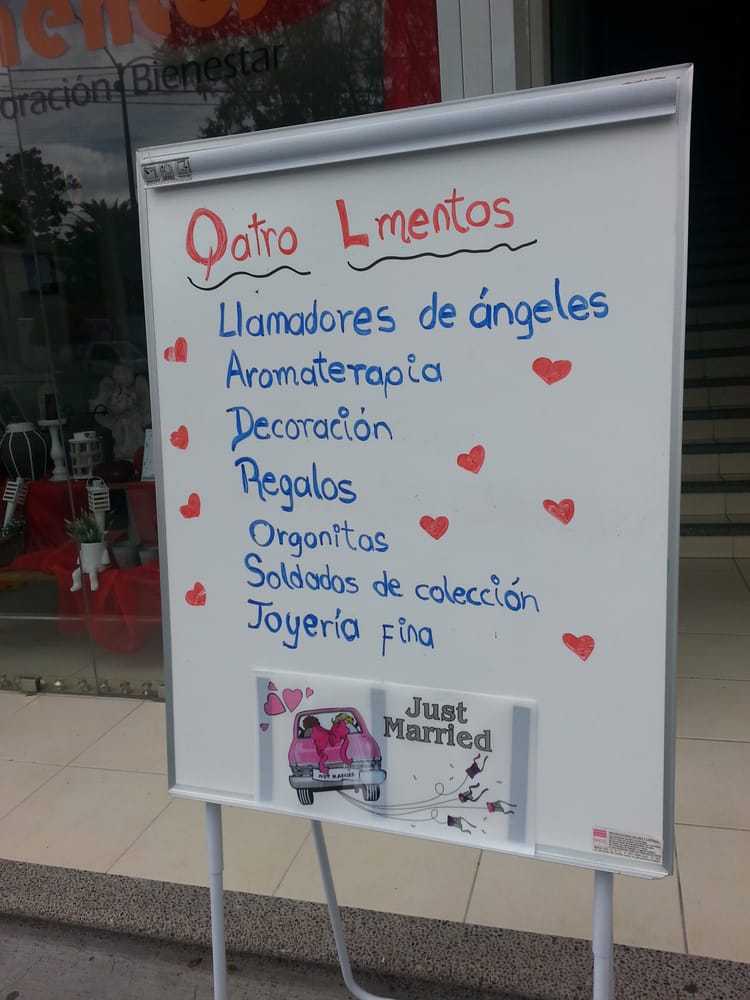 mentos
oración · Bienestar
Qatro Lmentos
Llamadores de ángeles
Aromaterapia
Decoración
Regalos
Orgonitas
Soldados de colección
Joyería Fina
Just
Married
JUST MARRIED